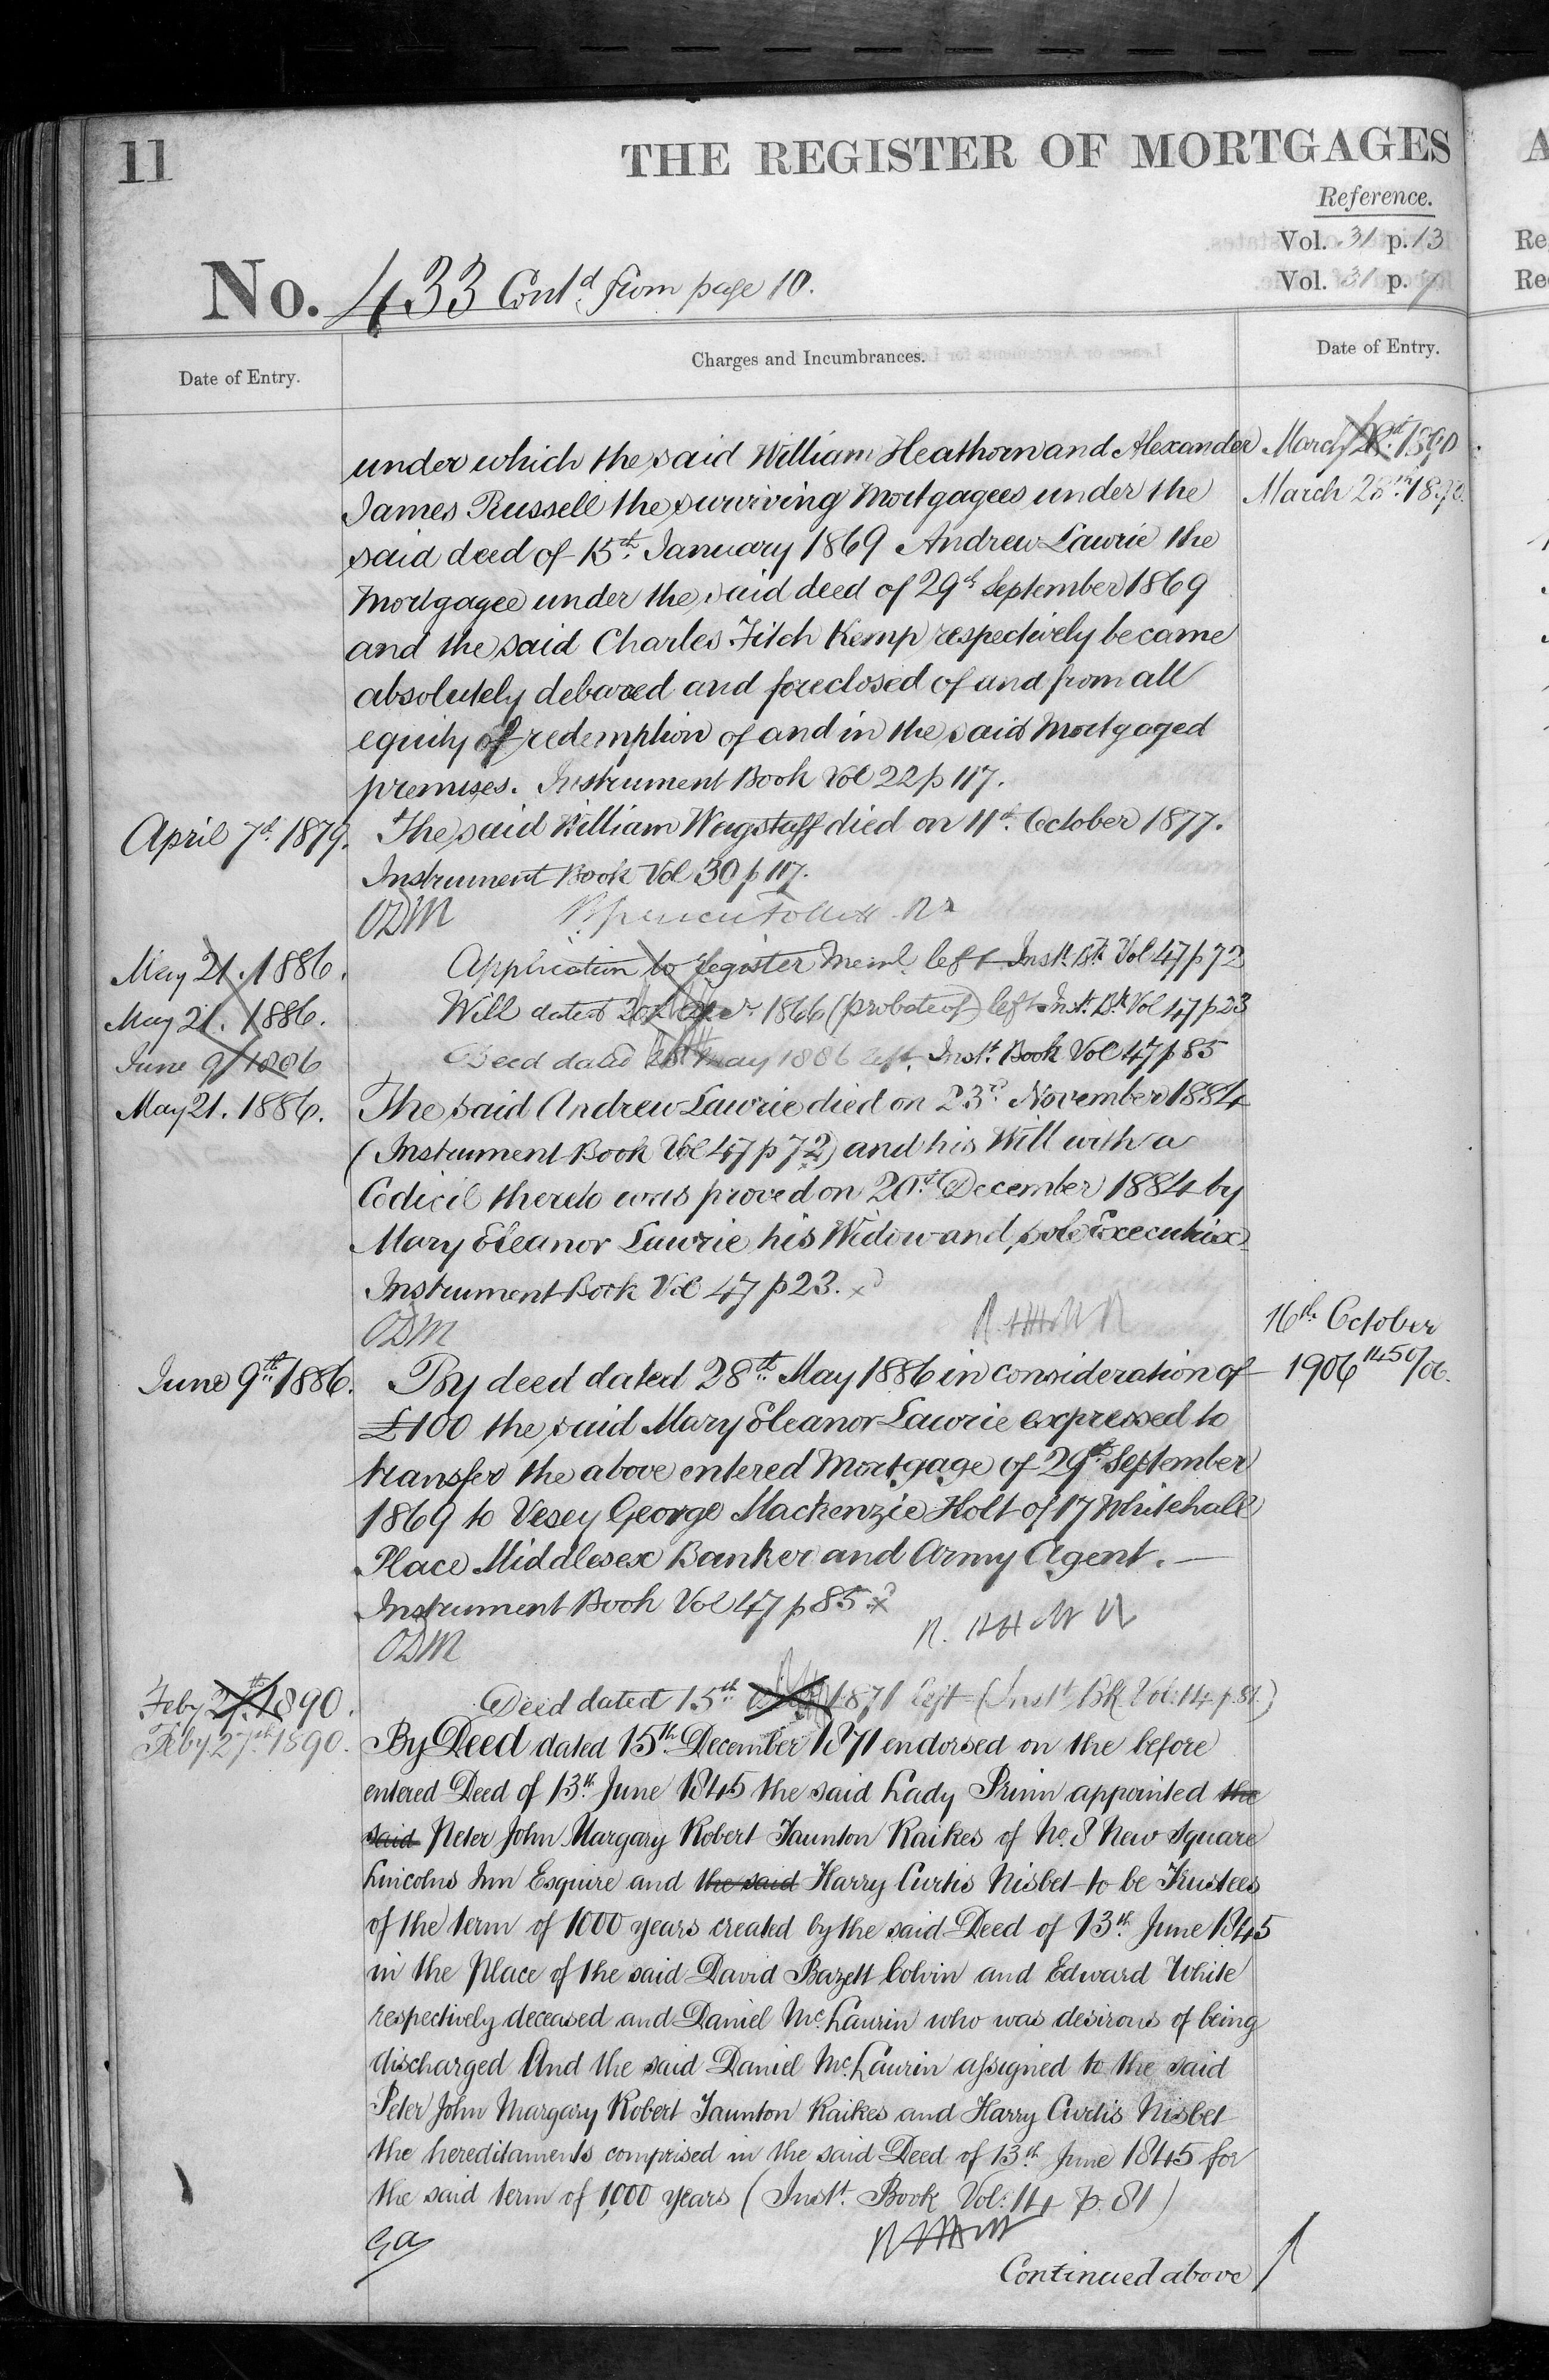 11
THE REGISTER OF MORTGAGES
Reference.
Vol. 31 p. 13
Vol. 31 p.
No. 433 Contd. from page 10.
Date of Entry.
Charges and Incumbrances.
Date of Entry.
under which the said William Heathorn and Alexander
James Russell the surviving Mortgagees under the
said deed of 15th. January 1869 Andrew Lawrie the
Mortgagee under the said deed of 29th September 1869
and the said Charles Fitch Kemp respectively became
absolutely debarred and foreclosed of and from all
equity of redemption of and in the said Mortgaged
premises. Instrument Book Vol 22 p 117.
April 7th 1879. The said William Wagstaff died on 11th. October 1877.
Instrument Book Vol 30 p 117.
ODM
May 21. 1886. Application to register Meml. left Inst. Bk. Vol 47 p 72
May 21. 1886. Will dated 1866 (probate of) left Inst. Bk. Vol 47 p 23
June 9 1886 Deed dated 28 May 1886 left. Inst. Book Vol 47 p 85
May 21. 1886. The said Andrew Lawrie died on 23rd. November 1884
(Instrument Book Vol 47 p 72) and his Will with a
Codicil thereto was proved on 20th. December 1884 by
Mary Eleanor Lawrie his Widow and sole Executrix
Instrument Book Vol 47 p 23.
ODM
June 9th. 1886. By deed dated 28th. May 1886 in consideration of
£100 the said Mary Eleanor Lawrie expressed to
transfer the above entered Mortgage of 29th September
1869 to Vesey George Mackenzie Holt of 17 Whitehall
Place Middlesex Banker and Army Agent. —
Instrument Book Vol 47 p 85
ODM
Feby 27th. 1890. Deed dated 15th 1871 left (Instt. Bk. Vol: 14 p. 81.)
Feby 27th. 1890. By Deed dated 15th. December 1871 endorsed on the before
entered Deed of 13th. June 1845 the said Lady Prinn appointed the
said Peter John Margary Robert Taunton Raikes of No. 8 New Square
Lincolns Inn Esquire and the said Harry Curtis Nisbet to be Trustees
of the term of 1000 years created by the said Deed of 13th. June 1845
in the Place of the said David Bazett Colvin and Edward White
respectively deceased and Daniel Mc.Laurin who was desirous of being
discharged And the said Daniel Mc.Laurin assigned to the said
Peter John Margary Robert Taunton Raikes and Harry Curtis Nisbet
the hereditaments comprised in the said Deed of 13th. June 1845 for
the said term of 1,000 years (Instt. Book Vol: 14 p. 81)
Continued above
March 1890
March 28th. 1890.
16th. October
1906 1450/06.
A
Re
Re